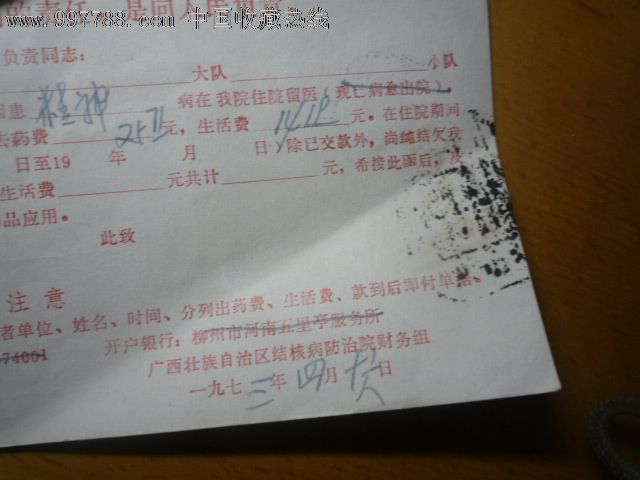 www.997788.com 中国收藏热线
负责同志：
大队 小队
患 精神 病在我院住院留医（现已病愈出院）
去药费 元，生活费 元。在住院期间
日至19 年 月 日）除已交款外，尚纯结欠我
生活费 元共计 元，希接此函后，及
品应用。
此致
注意
者单位、姓名、时间、分列出药费、生活费、款到后即付单据。
74001 开户银行：柳州市河南五里亭服务所
广西壮族自治区结核病防治院财务组
一九七三年四月 日